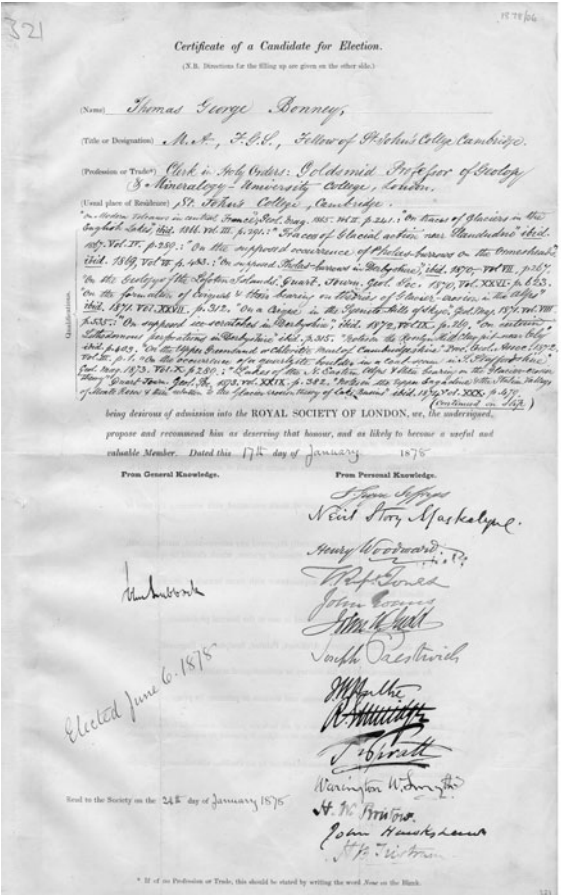 321
1878/06
Certificate of a Candidate for Election.
(N.B. Directions for the filling up are given on the other side.)
(Name) Thomas George Bonney,
(Title or Designation) M.A., F.G.S., Fellow of St John's College Cambridge.
(Profession or Trade*) Clerk in Holy Orders: Goldsmid Professor of Geology
& Mineralogy - University College, London.
(Usual place of Residence) St. John's College, Cambridge.
Qualifications.
"On Modern Volcanos in central France," Geol. Mag. 1865. Vol II. p. 241.: "On traces of Glaciers in the
English Lakes," ibid. 1866. Vol. III. p. 291.: "Traces of Glacial action near Llandudno" ibid.
1867. Vol. IV. p. 289.: "On the supposed occurrence of Pholas-burrows on the Ormesheads",
ibid. 1869, Vol VI p. 483.: "On supposed Pholas-burrows in Derbyshire," ibid. 1870, Vol VII. p. 267.
"On the Geology of the Lofoten Islands." Quart. Journ. Geol. Soc. 1870, Vol. XXVI. p. 623.
"On the formation of Cirques & their bearing on theories of Glacier-erosion in the Alps"
ibid. 1871. Vol. XXVII. p. 312. "On a Cirque in the Syenite Hills of Skye," Geol. Mag. 1871. Vol. VIII.
p. 535.: "On supposed ice-scratches in Derbyshire", ibid. 1872, Vol IX. p. 269. "On certain
Lithodomous perforations in Derbyshire" ibid. p. 315. "Notes on the Roslyn Hill Clay pit near Ely"
ibid. p. 403. "On the Upper Greensand or Chloritic Marl of Cambridgeshire" Proc. Geol. Assoc. 1872,
Vol. III. p. "On the occurrence of a quartzite boulder in a Coal-seam in S. Staffordshire"
Geol. Mag. 1873. Vol. X. p. 289.: "Lakes of the N. Eastern Alps & their bearing on the Glacier-erosion
theory" Quart. Journ. Geol. Soc. 1873. Vol. XXIX. p. 382. "Notes on the Upper Engadine & the Italian Valleys
of Monte Rosa & their relation to the Glacier erosion theory of Lake Basins" ibid. 1874 Vol. XXX. p. 479.
(continued on slip.)
being desirous of admission into the ROYAL SOCIETY OF LONDON, we, the undersigned,
propose and recommend him as deserving that honour, and as likely to become a useful and
valuable Member. Dated this 17th day of January 1878
From General Knowledge.
From Personal Knowledge.
J Gwyn Jeffreys
Nevil Story Maskelyne.
Henry Woodward
T. Rupert Jones
John Lubbock
John Evans
John W. Judd
Joseph Prestwich
Elected June 6. 1878
T Spratt
Warington W. Smyth
Read to the Society on the 24th day of January 1878
H. W. Bristow.
John Hawkshaw
H B Tristram
* If of no Profession or Trade, this should be stated by writing the word None on the Blank.